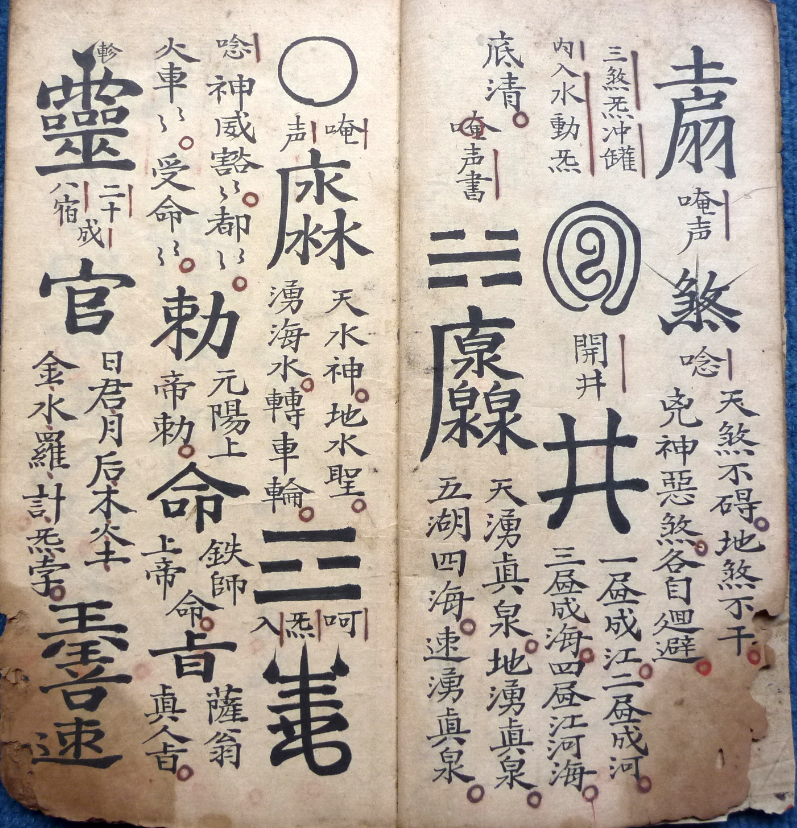 唵声
煞
唸
天煞不碍地煞不干
兇神惡煞各自廻避
三煞炁冲罐
內入水動炁
開井
井
一昼成江二昼成河
三昼成海四昼江河海
底清
唵声書
天湧眞泉地湧眞泉
五湖四海速湧眞泉
唵
声
天水神地水聖
湧海水轉車輪
呵
炁
入
唸
神威豁〻都〻
火車〻受命〻
勅
元陽上
帝勅
命
鉄師
上帝命
㫖
薩翁
眞人㫖
靈
二十
八宿
成
官
日君月后木火土
金水羅計炁孛
善
速